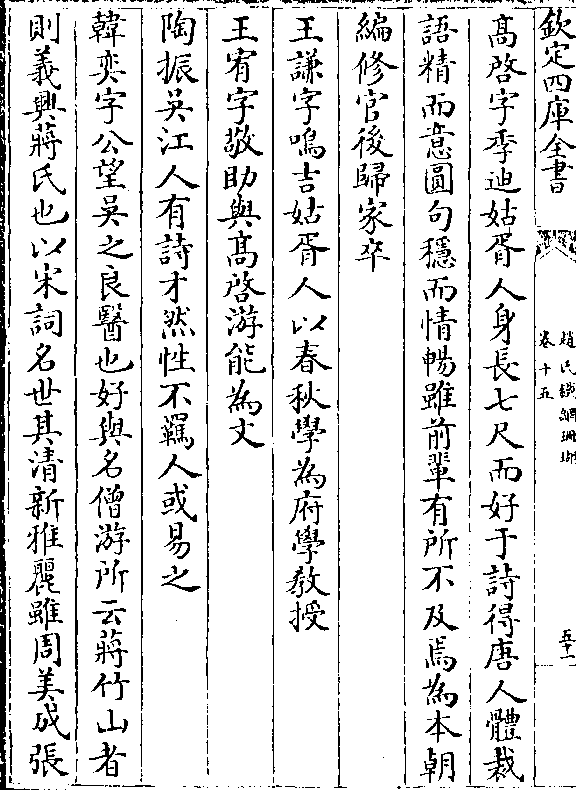 欽定四庫全書
趙氏鐵網珊瑚
卷十五
五十一
高啓字季迪姑胥人身長七尺而好于詩得唐人體裁
語精而意圓句穩而情暢雖前輩有所不及焉為本朝
編修官後歸家卒
王謙字鳴吉姑胥人以春秋學為府學教授
王宥字敬助與高啓游能為文
陶振吳江人有詩才然性不羈人或易之
韓奕字公望吳之良醫也好與名僧游所云蔣竹山者
則義興蔣氏也以宋詞名世其清新雅麗雖周美成張